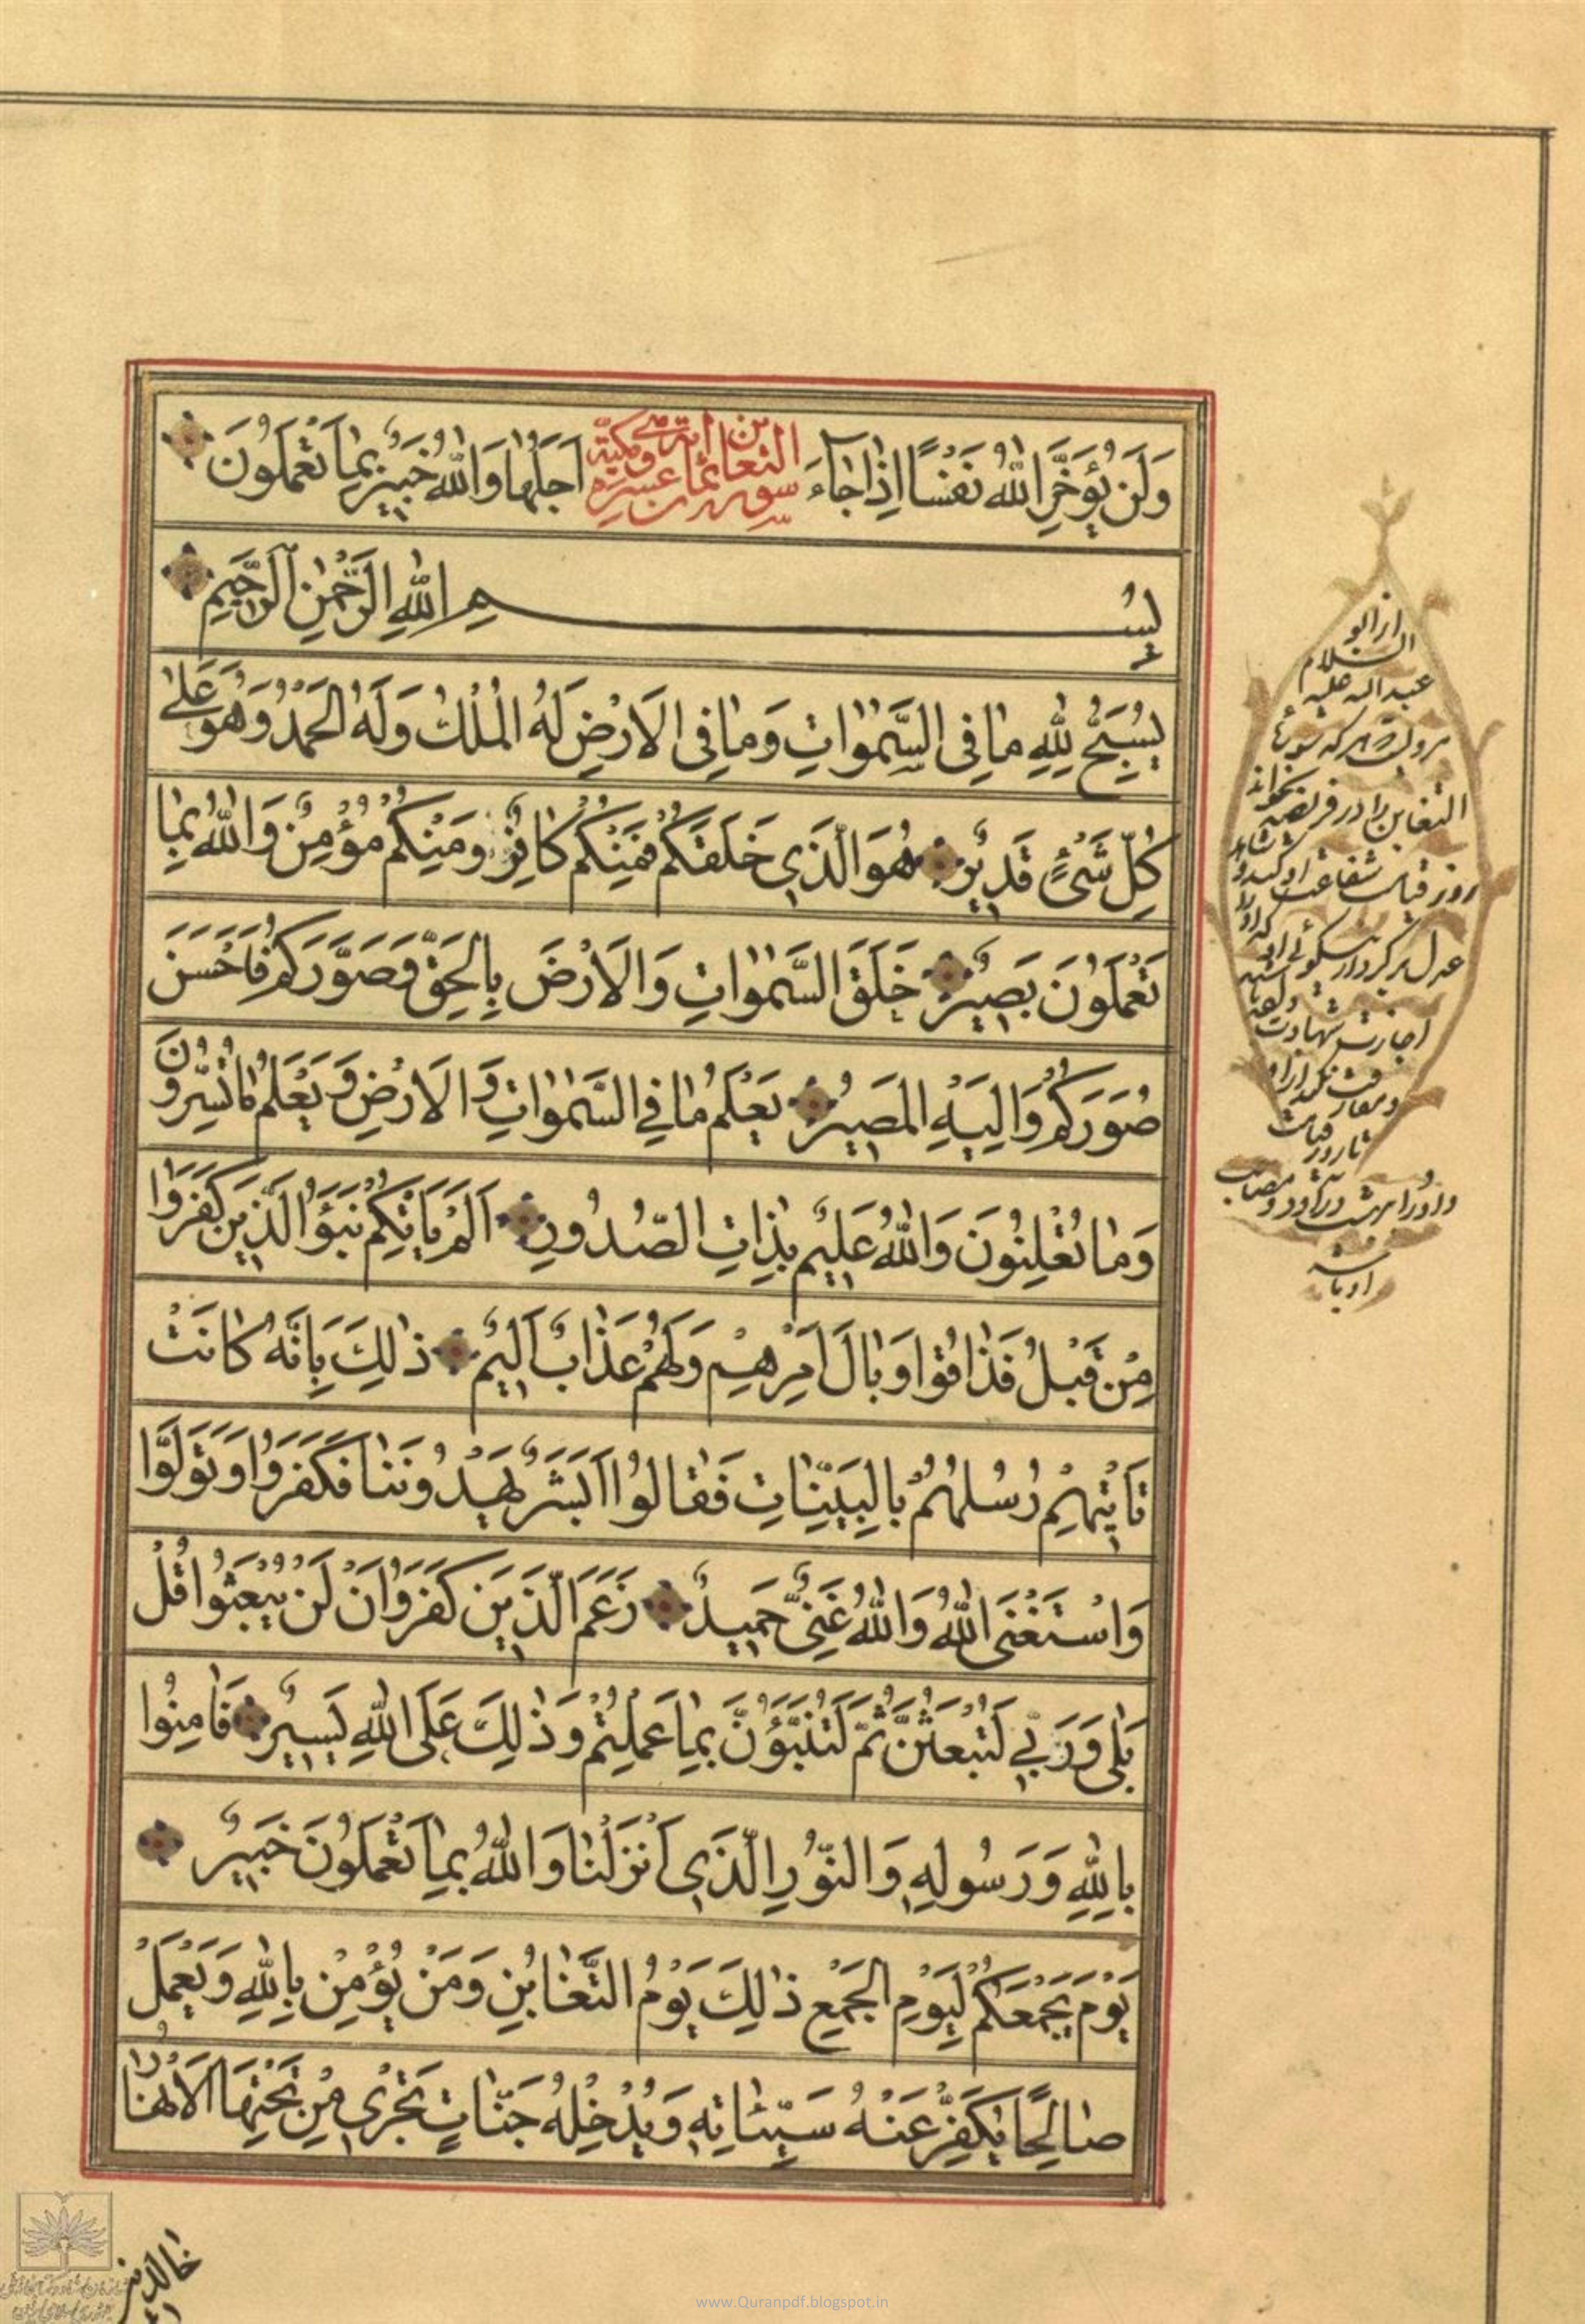 وَلَنْ يُؤَخِّرَ اللّٰهُ نَفْسًا اِذٰا جٰاۤءَ اَجَلُهٰا وَاللّٰهُ خَبِيرٌ بِمٰا تَعْمَلُونَ
سورة التغابن ثمان عشرة اية
بِسْمِ اللّٰهِ الرَّحْمٰنِ الرَّحِيمِ
يُسَبِّحُ لِلّٰهِ مٰا فِى السَّمٰوٰاتِ وَمٰا فِى الْاَرْضِ لَهُ الْمُلْكُ وَلَهُ الْحَمْدُ وَهُوَ عَلٰى
كُلِّ شَىْءٍ قَدِيرٌ هُوَ الَّذِى خَلَقَكُمْ فَمِنْكُمْ كٰافِرٌ وَمِنْكُمْ مُؤْمِنٌ وَاللّٰهُ بِمٰا
تَعْمَلُونَ بَصِيرٌ خَلَقَ السَّمٰوٰاتِ وَالْاَرْضَ بِالْحَقِّ وَصَوَّرَكُمْ فَاَحْسَنَ
صُوَرَكُمْ وَاِلَيْهِ الْمَصِيرُ يَعْلَمُ مٰا فِى السَّمٰوٰاتِ وَالْاَرْضِ وَيَعْلَمُ مٰا تُسِرُّونَ
وَمٰا تُعْلِنُونَ وَاللّٰهُ عَلِيمٌ بِذٰاتِ الصُّدُورِ اَلَمْ يَاْتِكُمْ نَبَؤُا الَّذِينَ كَفَرُوا
مِنْ قَبْلُ فَذٰاقُوا وَبٰالَ اَمْرِهِمْ وَلَهُمْ عَذٰابٌ اَلِيمٌ ذٰلِكَ بِاَنَّهُ كٰانَتْ
تَاْتِيهِمْ رُسُلُهُمْ بِالْبَيِّنٰاتِ فَقٰالُوا اَبَشَرٌ يَهْدُونَنٰا فَكَفَرُوا وَتَوَلَّوْا
وَاسْتَغْنَى اللّٰهُ وَاللّٰهُ غَنِىٌّ حَمِيدٌ زَعَمَ الَّذِينَ كَفَرُوا اَنْ لَنْ يُبْعَثُوا قُلْ
بَلٰى وَرَبِّى لَتُبْعَثُنَّ ثُمَّ لَتُنَبَّؤُنَّ بِمٰا عَمِلْتُمْ وَذٰلِكَ عَلَى اللّٰهِ يَسِيرٌ فَاٰمِنُوا
بِاللّٰهِ وَرَسُولِهِ وَالنُّورِ الَّذِى اَنْزَلْنٰا وَاللّٰهُ بِمٰا تَعْمَلُونَ خَبِيرٌ
يَوْمَ يَجْمَعُكُمْ لِيَوْمِ الْجَمْعِ ذٰلِكَ يَوْمُ التَّغٰابُنِ وَمَنْ يُؤْمِنْ بِاللّٰهِ وَيَعْمَلْ
صٰالِحًا يُكَفِّرْ عَنْهُ سَيِّئٰاتِهِ وَيُدْخِلْهُ جَنّٰاتٍ تَجْرِى مِنْ تَحْتِهَا الْاَنْهٰارُ
خالدين
السلام
عبد الله عليه
التغابن را در فريضه بخواند
روز قيامت شفاعت او كند و
تا روز قيامت
www.Quranpdf.blogspot.in